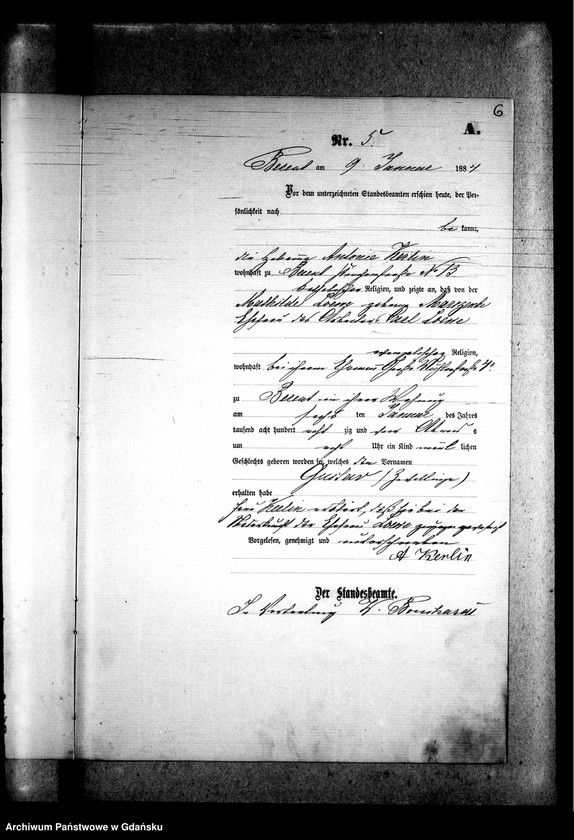 6
A.
Nr. 5.
Berent am 9 Januar 1884
Vor dem unterzeichneten Standesbeamten erschien heute, der Per-
sönlichkeit nach
be kannt,
die Hebamme Antonie Kerlin
wohnhaft zu Berent No 13
katholischer Religion, und zeigte an, daß von der
Mathilde Loewe geborne
Ehefrau des Arbeiters Carl Loewe
evangelischer Religion,
wohnhaft bei ihrem Ehemann Große Mühlenstraße
zu Berent in ihrer Wohnung
am sechs ten Januar des Jahres
tausend acht hundert acht zig und vier Abends
um acht Uhr ein Kind männ lichen
Geschlechts geboren worden sei, welches die Vornamen
Gustav (Zwillinge)
erhalten habe
Frau Kerlin erklärt, daß sie bei der
Niederkunft der Ehefrau Loewe zugegen gewesen sei
Vorgelesen, genehmigt und unterschrieben
A Kerlin
Der Standesbeamte.
In Vertretung
Archiwum Państwowe w Gdańsku